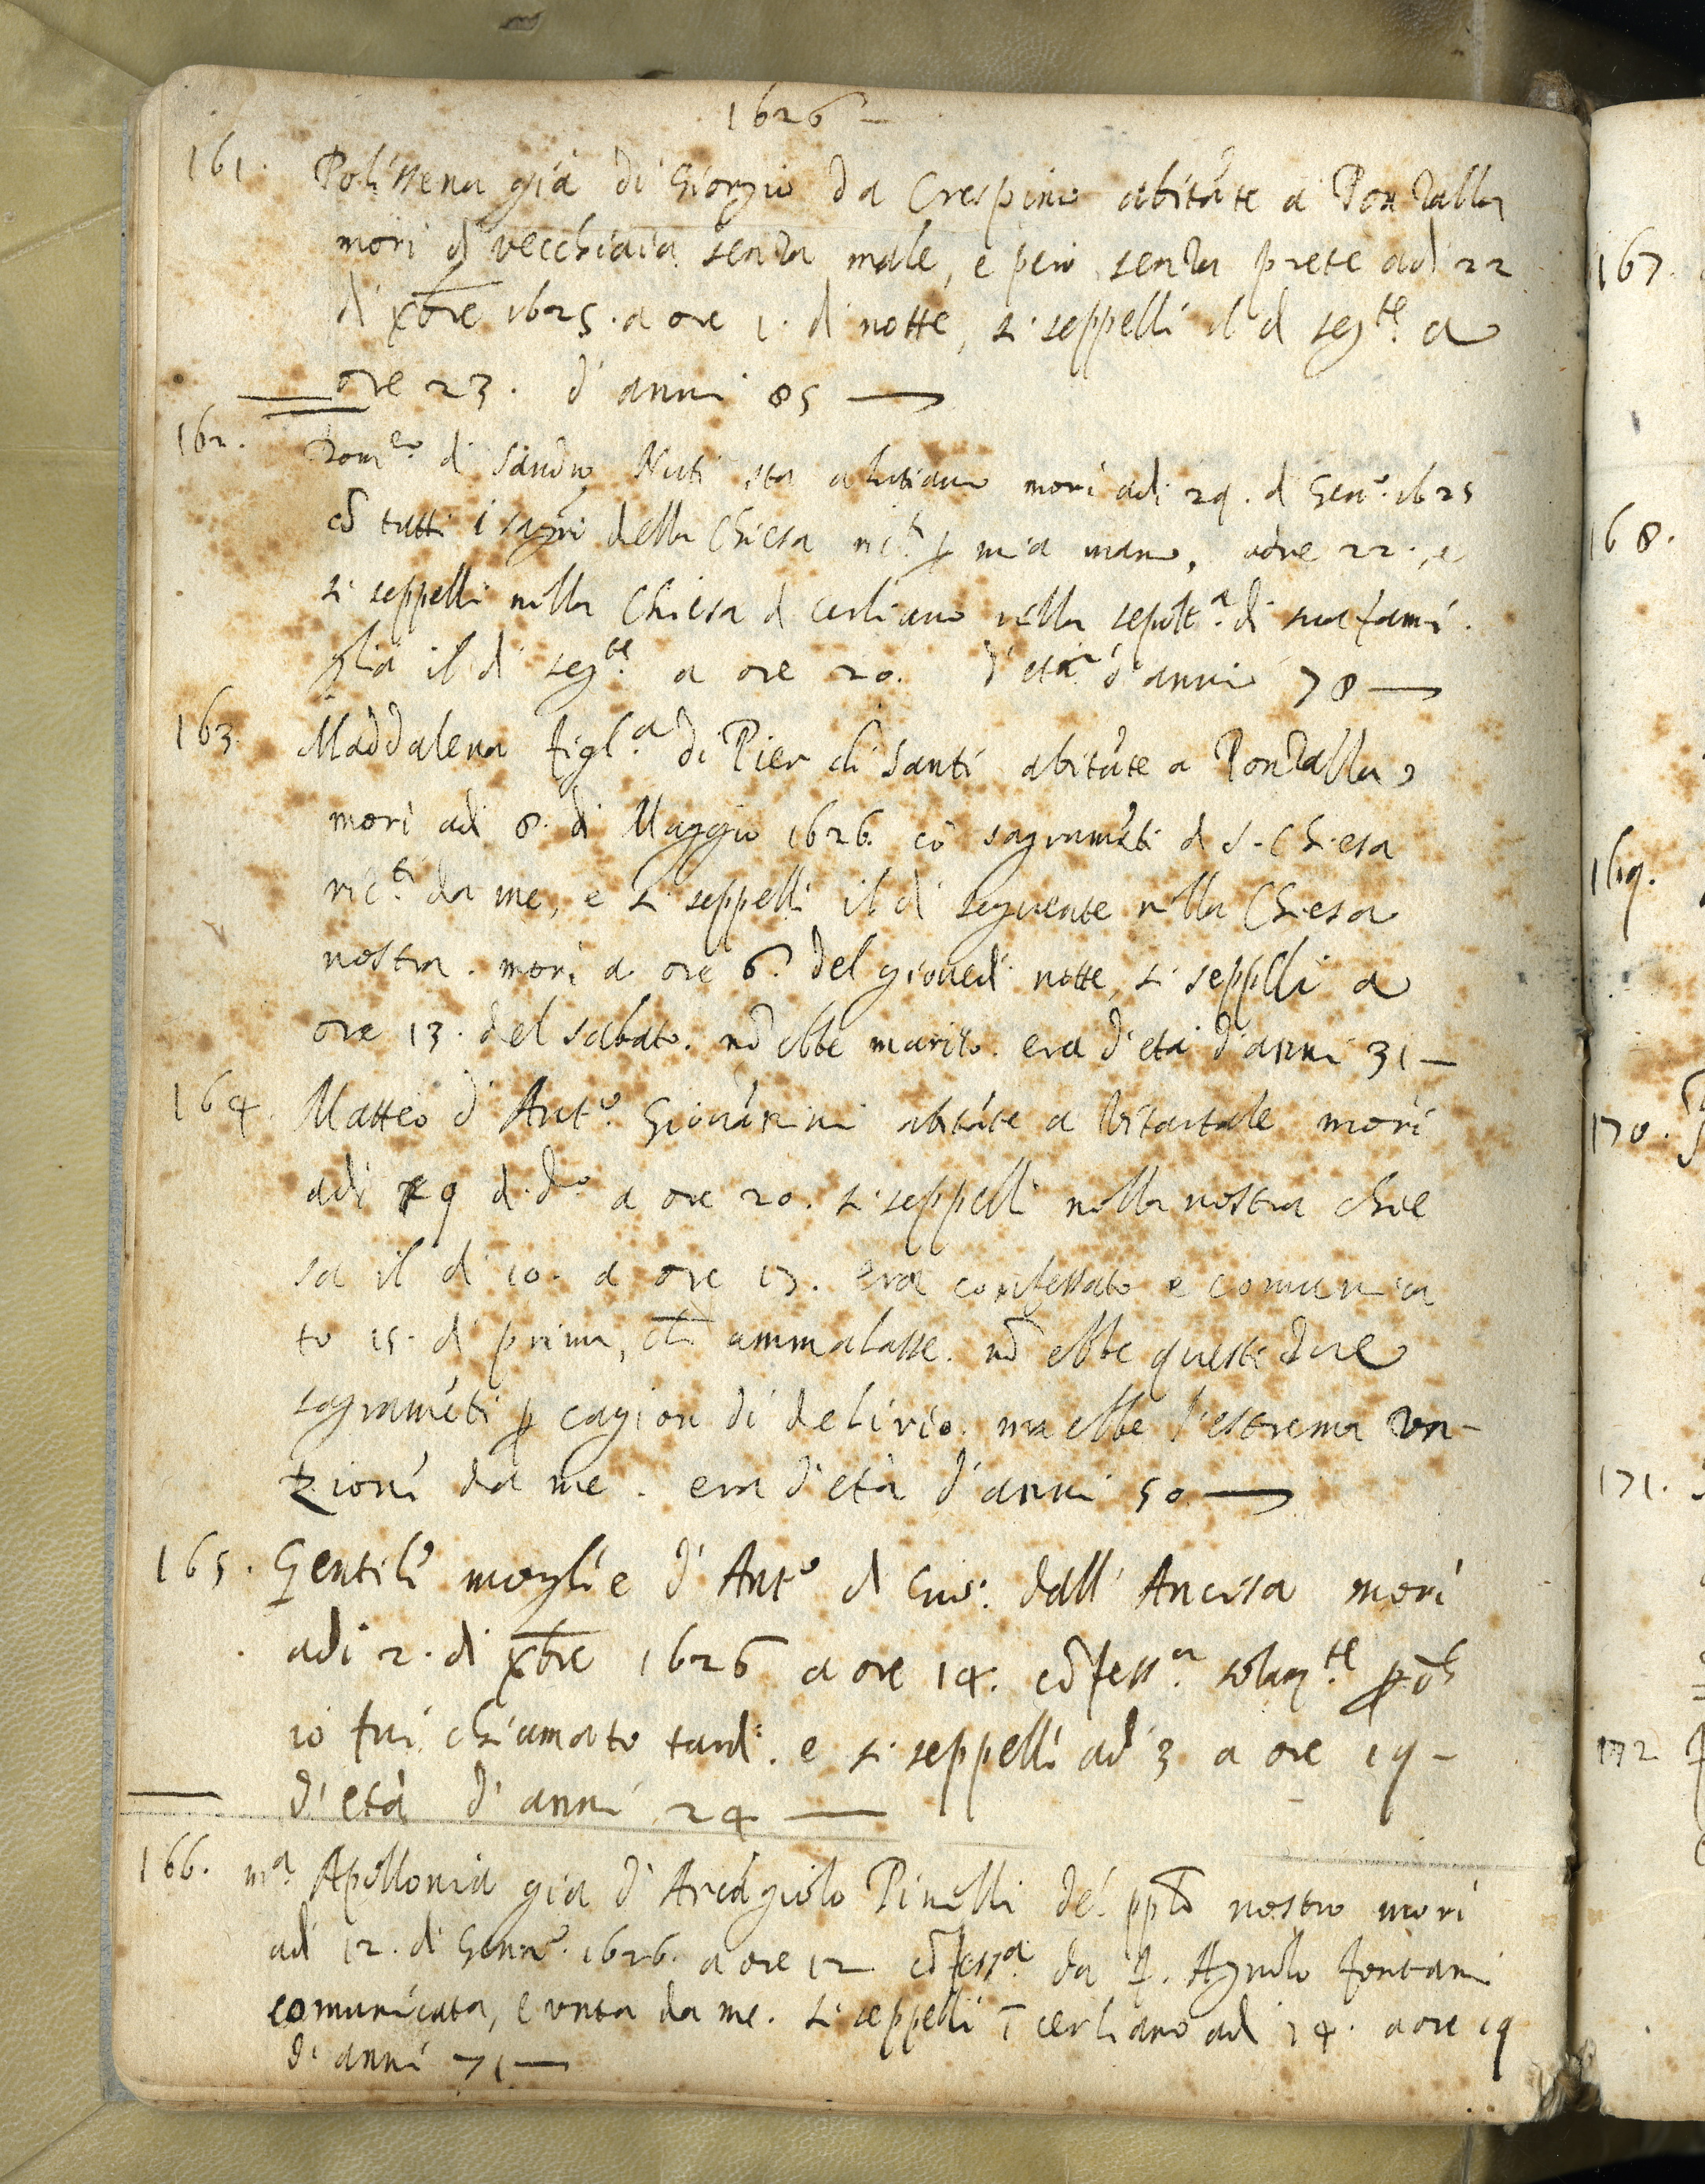 1626
161. Polissena già di Giorgio da Crespino abitãte a Ponzalla
morì di vecchiaia senza male, e però senza prete adi 22
di xbre 1625. a ore 1. di notte, si seppellì il dì segte. a
ore 23. d'anni 85
162. Domco. di Sandro Nuti sta a Lutiano morì adi 29. di Geno. 1625
cõ tutti i sagri della Chiesa ricti. p mia mano, a ore 22., e
si seppellì nella Chiesa di Cerliano nella sepolta. di sua fami
glia il dì segte. a ore 20. d'età d'anni 78
163. Maddalena figla. di Pier di Santi abitãte a Ponzalla,
morì adi 8. di Maggio 1626. cõ sagramẽti di S. Chiesa
ricti. da me, e si seppellì il dì seguente nella Chiesa
nostra. morì a ore 6. del giovedì notte, si seppellì a
ore 13. del sabato. nõ ebbe marito. era d'età d'anni 31
164. Matteo d'Anto. Giovãnini abitãte a Vitartale morì
adi 9 di do. a ore 20. si seppellì nella nostra chie
sa il dì 10. a ore 17. era confessato e comunica
to 15. dì prima, ch ammalasse. nõ ebbe questi due
sagramẽti p cagion di delirio. ma ebbe l'estrema un-
zioni da me. era d'età d'anni 50
165. Gentile moglie d'Anto di Gio: dall'Ancisa morì
adi 2. di xbre 1626 a ore 14. cõfessa. solamte. pch
io fui chiamato tardi. e si seppellì adi 3 a ore 19
d'età d'anni 24
166. ma. Apollonia già d'Arcãgiolo Pinelli del pplo nostro morì
adi 12. di Genno. 1626. a ore 12 cõfessa. da f. Agnolo Fontani
comunicata, e unta da me. si seppellì ĩ Cerliano adi 14. a ore 19
d'anni 71
167.
168.
169.
170.
171.
172